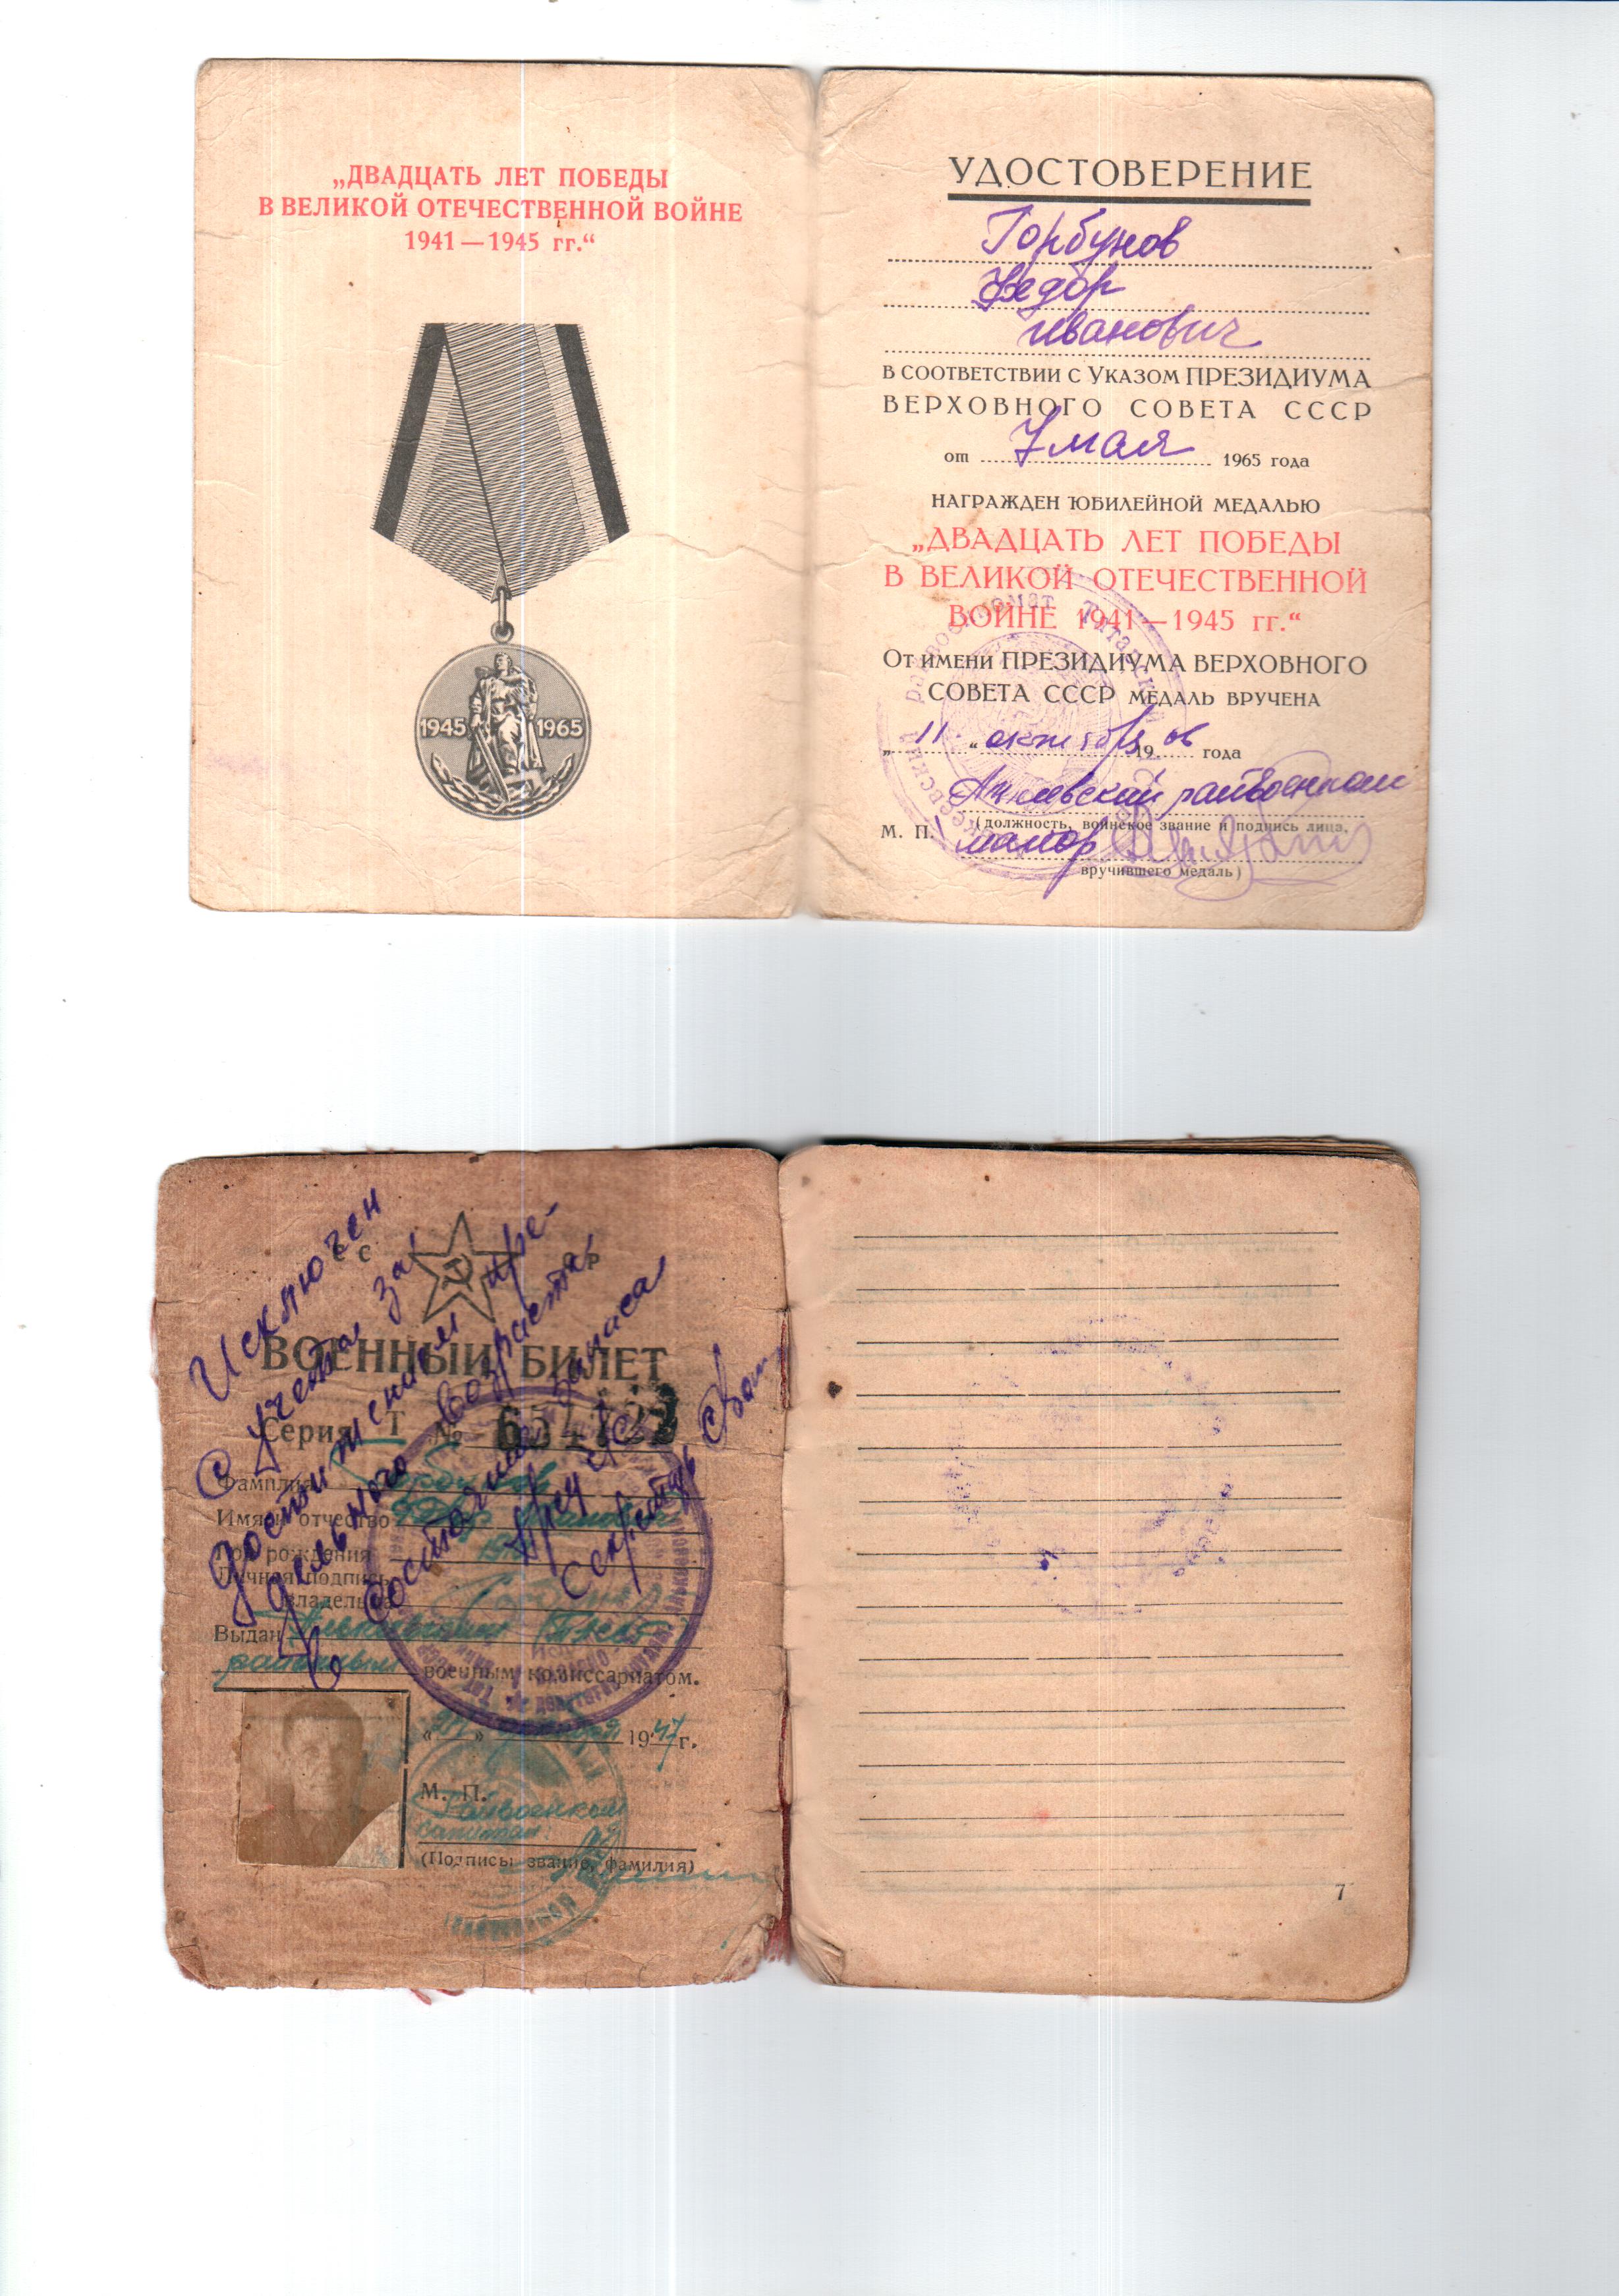 „ДВАДЦАТЬ ЛЕТ ПОБЕДЫ
В ВЕЛИКОЙ ОТЕЧЕСТВЕННОЙ ВОЙНЕ
1941—1945 гг.“
1945 1965
УДОСТОВЕРЕНИЕ
Горбунов
Федор
Иванович
В СООТВЕТСТВИИ С УКАЗОМ ПРЕЗИДИУМА
ВЕРХОВНОГО СОВЕТА СССР
от 7 мая 1965 года
НАГРАЖДЕН ЮБИЛЕЙНОЙ МЕДАЛЬЮ
„ДВАДЦАТЬ ЛЕТ ПОБЕДЫ
В ВЕЛИКОЙ ОТЕЧЕСТВЕННОЙ
ВОЙНЕ 1941—1945 гг.“
ОТ ИМЕНИ ПРЕЗИДИУМА ВЕРХОВНОГО
СОВЕТА СССР МЕДАЛЬ ВРУЧЕНА
„11“ октября 1966 года
райвоенком
М. П. (должность, воинское звание и подпись лица,
майор
вручившего медаль)
Исключен
с учета за
достижением пре-
дельного возраста
в состоянии запаса
секретарь
ВОЕННЫЙ БИЛЕТ
Серия Т №
Фамилия Горбунов
Имя и отчество Федор Иванович
Год рождения
Личная подпись
владельца
Выдан
районным военным комиссариатом.
« » 1947 г.
М. П.
Райвоенком
капитан
(Подпись, звание, фамилия)
7